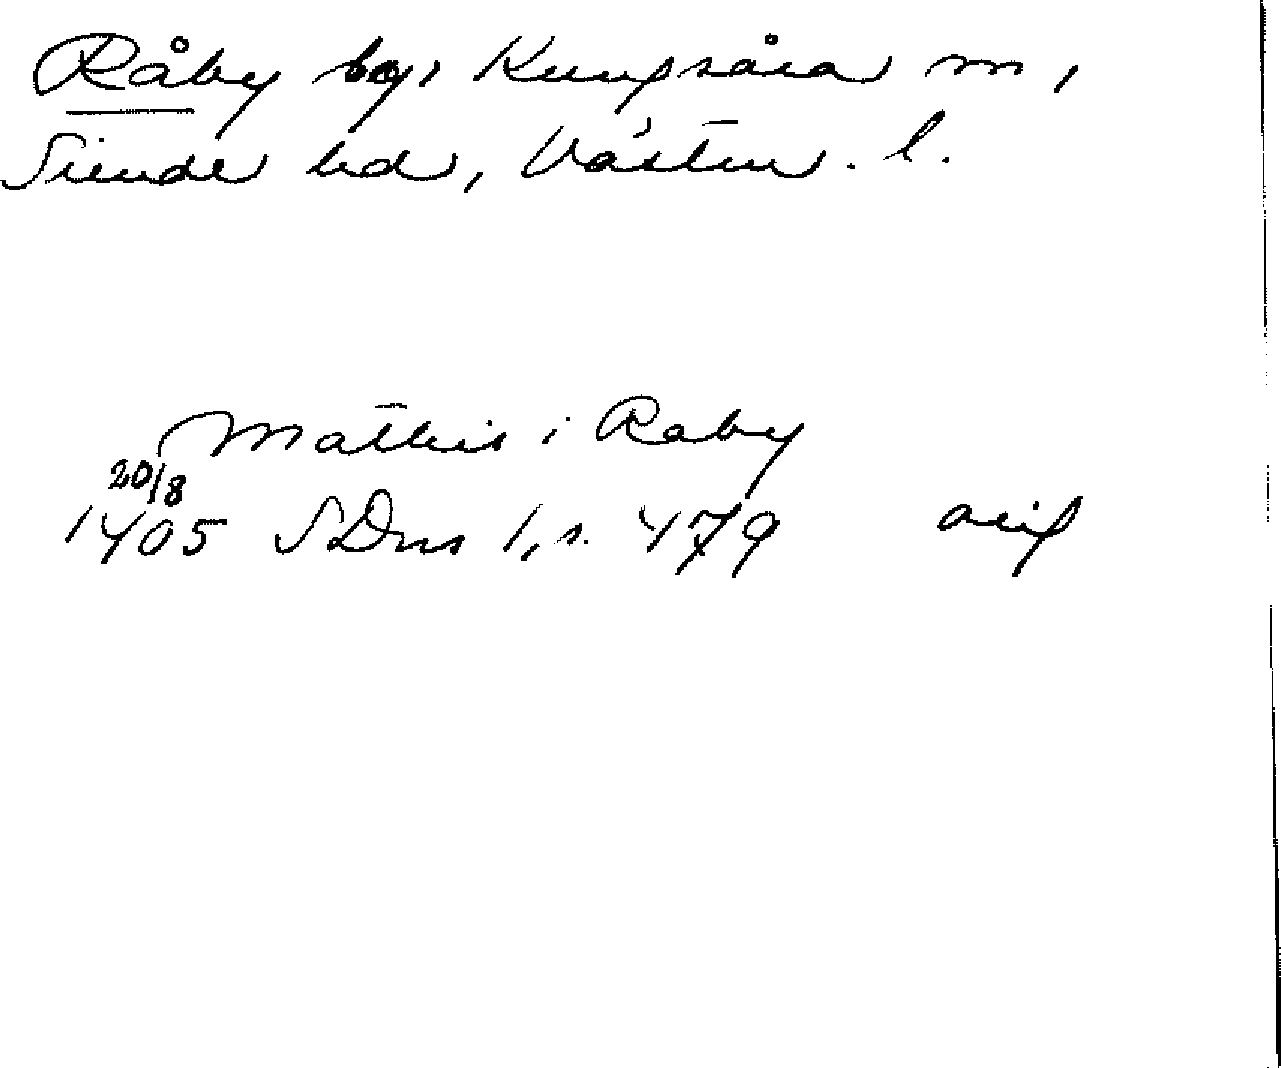 Råby by, Kungsåra sn,
Siende hd, Västm. l.
Mathis i Raby
20/8
1405 SDns 1, s. 479 avig